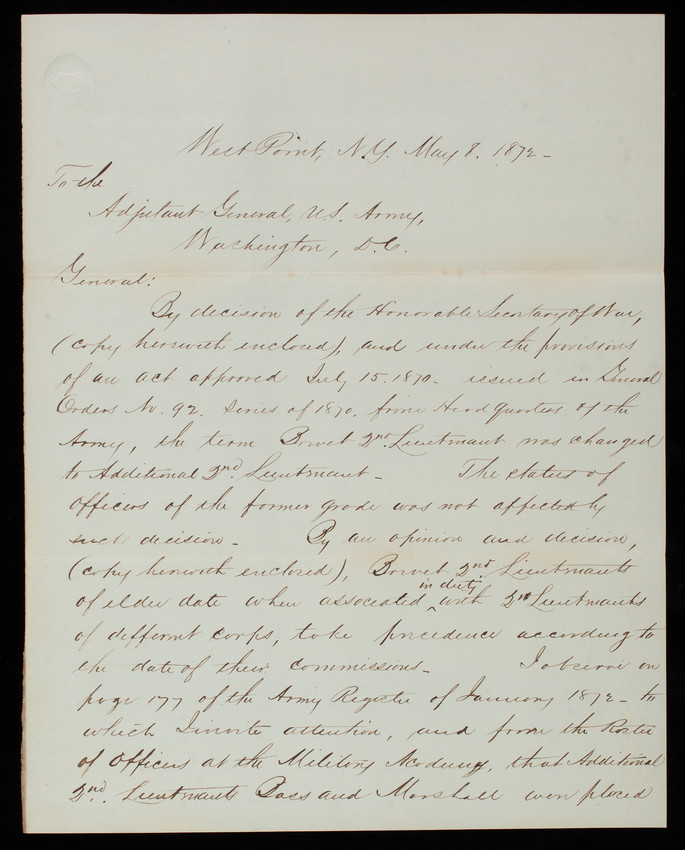 West Point, N.Y. May 8. 1872-
To the
Adjutant General, U.S. Army,
Washington, D.C.
General:
By decision of the Honorable Secretary of War,
(copy herewith enclosed), and under the provisions
of an act approved July 15. 1870. issued in General
Orders No. 92. Series of 1870. from Head Quarters of the
Army, the term Brevet 2nd. Lieutenant was changed
to Additional 2nd. Lieutenant - The status of
officers of the former grade was not affected by
such decision - By an opinion and decision,
(copy herewith enclosed), Brevet 2nd Lieutenants
in duty
of elder date when associated ‸ with 2nd Lieutenants
of different corps, take precedence according to
the date of their commissions - I observe on
page 177 of the Army Register of January 1872 - to
which I invite attention, and from the Roster
of Officers at the Military Academy, that Additional
2nd. Lieutenants Bass and Marshall were placed